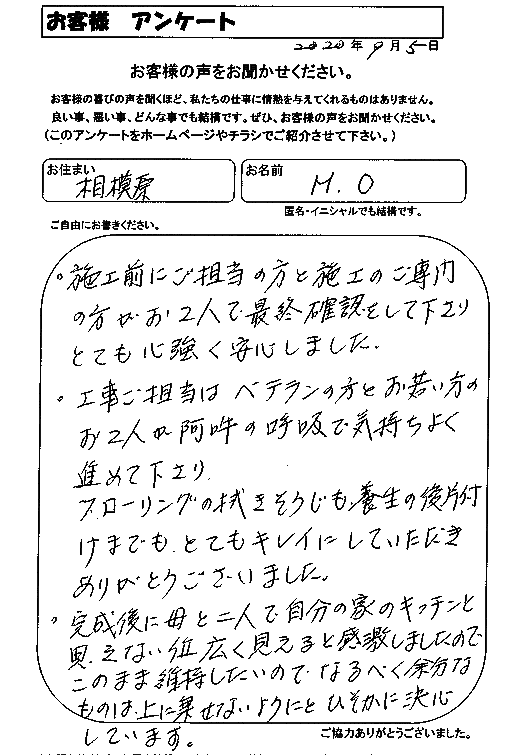 お客様 アンケート
2020年9月5日
お客様の声をお聞かせください。
お客様の喜びの声を聞くほど、私たちの仕事に情熱を与えてくれるものはありません。
良い事、悪い事、どんな事でも結構です。ぜひ、お客様の声をお聞かせください。
(このアンケートをホームページやチラシでご紹介させて下さい。)
お住まい
相模原
お名前
M.O
匿名・イニシャルでも結構です。
ご自由にお書きください。
。施工前にご担当の方と施工のご専門
の方がお2人で最終確認をして下さり
とても心強く安心しました。
。工事ご担当は ベテランの方とお若い方の
お2人が阿吽の呼吸で気持ちよく
進めて下さり、
フローリングの拭きそうじも、養生の後片付
けまでも、とてもキレイにしていただき
ありがとうございました。
。完成後に母と二人で自分の家のキッチンと
思えない位 広く見えると感激しましたので
このまま維持したいので なるべく余分な
ものは上に乗せないようにと ひそかに決心
しています。
ご協力ありがとうございました。